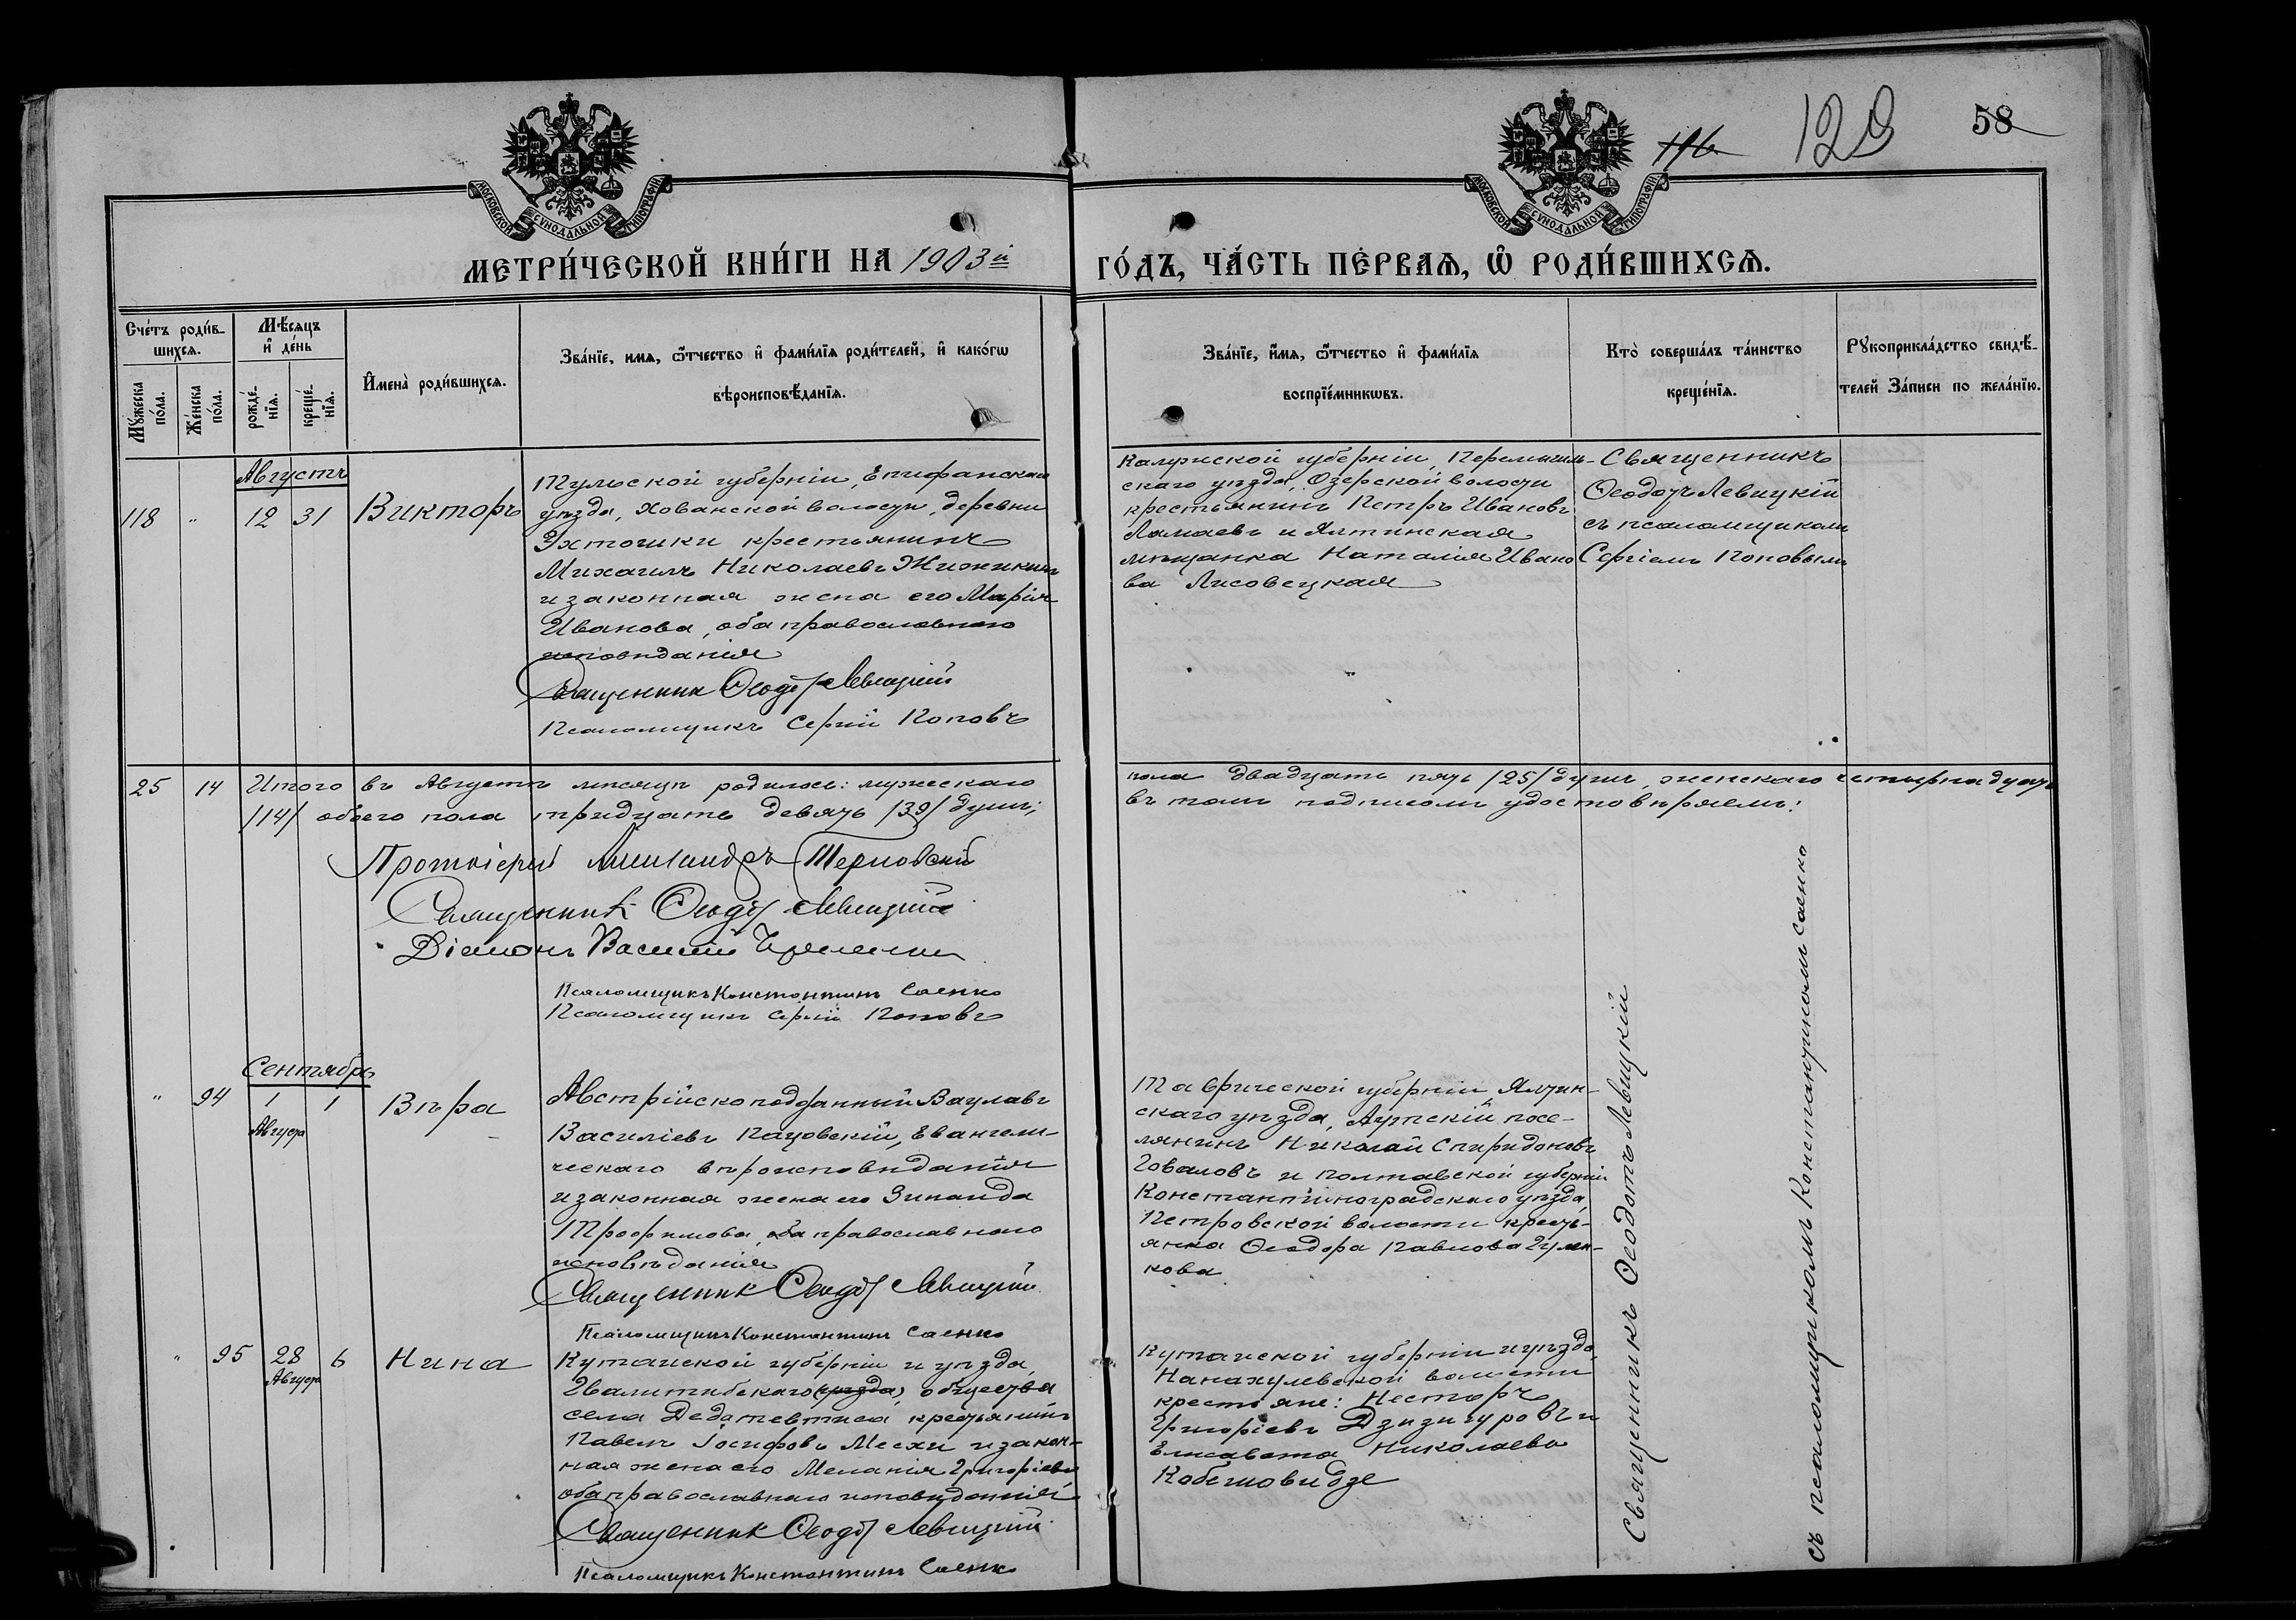 116
120
58
МОСКОВСКОЙ СѴНОДАЛЬНОЙ ТИПОГРАФІИ
МОСКОВСКОЙ СѴНОДАЛЬНОЙ ТИПОГРАФІИ
МЕТРИ́ЧЕСКОЙ КНИ́ГИ НА 1903й
ГО́ДЪ, ЧА́СТЬ ПЕ́РВАѦ, Ѡ҆ РОДИ́ВШИХСѦ.
Сче́тъ роди́в-
шихсѧ.
Мꙋ́жеска
по́ла.
Же́нска
по́ла.
Мѣ́сѧцъ
и҆ де́нь
рожде́-
нїѧ.
креще́-
нїѧ.
И҆мена̀ роди́вшихсѧ.
Зва́нїе, имѧ, ѻ҆́тчество и҆ фами́лїѧ роди́телей, и҆ како́гѡ
вѣроисповѣ́данїѧ.
Зва́нїе, и҆́мѧ, ѻ҆́тчество и҆ фами́лїѧ
воспрїе́мникѡвъ.
Кто̀ соверша́лъ та́инство
креще́нїѧ.
Рꙋкоприкла́дство свидѣ́-
телей За́писи по жела́нїю.
Августъ
118 " 12 31 Викторъ
Тульской губерніи, Епифанскаго
уѣзда, Хованской волости, деревни
крестьянинъ
Михаилъ Николаевъ Жижикинъ
и законная жена его Марія
Иванова, оба православнаго
исповѣданія
Священникъ Ѳеодотъ Левицкій
Псаломщикъ Сергій Поповъ
Калужской губерніи, Перемышль-
скаго уѣзда, Озерской волости
крестьянинъ Петръ Ивановъ
Ламаевъ и Ялтинская
мѣщанка Наталія Ивано
ва Лисовецкая
Священникъ
Ѳеодотъ Левицкій
съ псаломщикомъ
Сергіемъ Поповымъ
25 14 Итого въ Августѣ мѣсяцѣ родилось: мужескаго
пола двадцать пять /25/ душъ, женскаго четырнадцать
/14/ обоего пола тридцать девять /39/ душъ;
въ томъ подписомъ удостовѣряемъ:
Протоіерей Александръ Терновскій
Священникъ Ѳеодотъ Левицкій
Діаконъ Василій
Псаломщикъ Константинъ Саенко
Псаломщикъ Сергій Поповъ
Сентябрь
" 94 1 1 Вѣра
Августа
Австрійскоподданный Вацлавъ
Василіевъ Пацовскій, Евангели-
ческаго вѣроисповѣданія
и законная жена его Зинаида
Трофимова, оба православнаго
исповѣданія
Священникъ Ѳеодотъ Левицкій
Псаломщикъ Константинъ Саенко
Таврической губерніи, Ялтин-
скаго уѣзда, Аутскій посе-
лянинъ Николай Спиридоновъ
Говаловъ и Полтавской губерніи
Константиноградскаго уѣзда,
Петровской волости кресть-
янка Ѳеодора Павлова Гумен-
кова
" 95 28 6 Нина
Августа
Кутаиской губерніи и уѣзда,
Гвалитибскаго (уѣзда) общества
села крестьянинъ
Павелъ Іосифовъ Месхи и закон-
ная жена его Меланія Григоріева
оба православнаго исповѣданія
Священникъ Ѳеодотъ Левицкій
Псаломщикъ Константинъ Саенко
Кутаиской губерніи и уѣзда,
волости
крестьяне: Несторъ
Григоріевъ Дзизигуровъ и
Елисавета Николаева
Кобешовидзе
Священникъ Ѳеодотъ Левицкій
съ псаломщикомъ Константиномъ Саенко